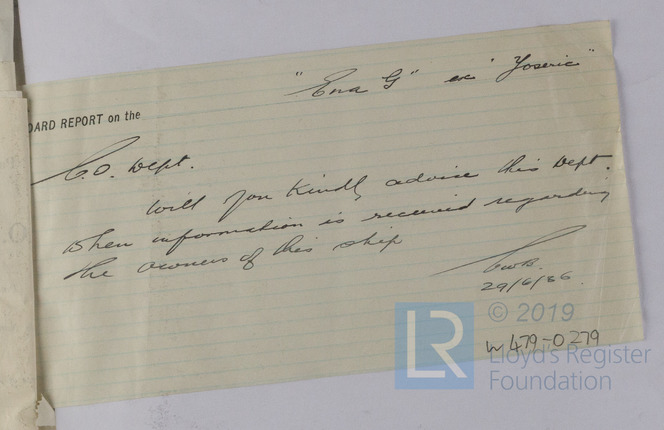 "Ena G" ex "Yoseric"
OARD REPORT on the
C.O. Dept.
Will you kindly advise this Dept.
when information is received regarding
the owners of this ship
29/6/36.
© 2019
LR
W479-0279
Lloyd's Register
Foundation